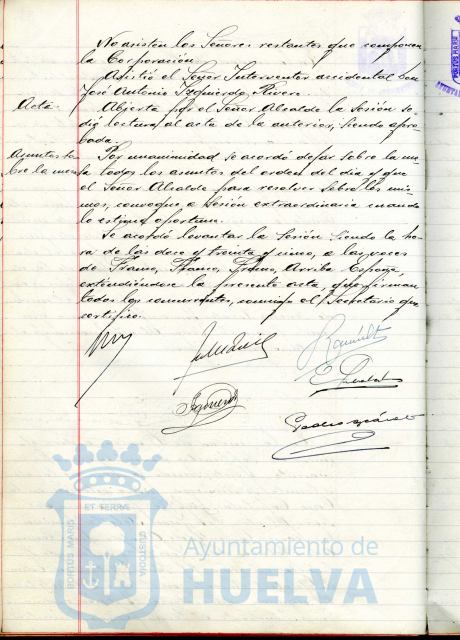 No asisten los Señores restantes que componen
la Corporación.
Asistió el Señor Interventor accidental Don
José Antonio Izquierdo Rivero.
Acta.
Abierta por el Señor Alcalde la Sesión se
dió lectura al acta de la anterior, siendo apro-
bada.
Asuntos so-
bre la mesa
Por unanimidad se acordó dejar sobre la me-
sa todos los asuntos del orden del día y que
el Señor Alcalde para resolver sobre los mis-
mos, convoque a sesión extraordinaria cuando
lo estime oportuno.
Se acordó levantar la Sesión siendo la ho-
ra de las doce y treinta y cinco, a las voces
de Franco, Franco, Franco, Arriba España,
extendiéndose la presente acta, que firman
todos los concurrentes, conmigo el Secretario que
certifico.
ET TERRAE
PORTUS MARIS
CUSTODIA
Ayuntamiento de
HUELVA